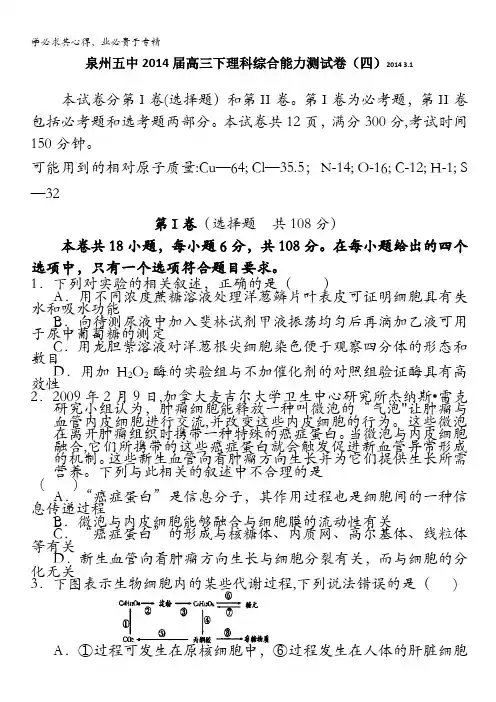 学必求其心得，业必贵于专精
泉州五中2014届高三下理科综合能力测试卷（四）2014 3.1
本试卷分第I卷(选择题）和第II卷。第I卷为必考题，第II卷
包括必考题和选考题两部分。本试卷共12页，满分300分,考试时间
150分钟。
可能用到的相对原子质量:Cu—64; Cl—35.5；N-14; O-16; C-12; H-1; S
—32
第I卷（选择题 共108分）
本卷共18小题，每小题6分，共108分。在每小题给出的四个
选项中，只有一个选项符合题目要求。
1．下列对实验的相关叙述，正确的是（ ）
A．用不同浓度蔗糖溶液处理洋葱鳞片叶表皮可证明细胞具有失
水和吸水功能
B．向待测尿液中加入斐林试剂甲液振荡均匀后再滴加乙液可用
于尿中葡萄糖的测定
C．用龙胆紫溶液对洋葱根尖细胞染色便于观察四分体的形态和
数目
D．用加H₂O₂酶的实验组与不加催化剂的对照组验证酶具有高
效性
2．2009年2月9日,加拿大麦吉尔大学卫生中心研究所杰纳斯•雷克
研究小组认为，肿瘤细胞能释放一种叫微泡的“气泡"让肿瘤与
血管内皮细胞进行交流,并改变这些内皮细胞的行为。这些微泡
在离开肿瘤组织时携带一种特殊的癌症蛋白。当微泡与内皮细胞
融合,它们所携带的这些癌症蛋白就会触发促进新血管异常形成
的机制。这些新生血管向着肿瘤方向生长并为它们提供生长所需
营养。下列与此相关的叙述中不合理的是
（ ）
A．“癌症蛋白”是信息分子，其作用过程也是细胞间的一种信
息传递过程
B．微泡与内皮细胞能够融合与细胞膜的流动性有关
C．“癌症蛋白”的形成与核糖体、内质网、高尔基体、线粒体
等有关
D．新生血管向着肿瘤方向生长与细胞分裂有关，而与细胞的分
化无关
3．下图表示生物细胞内的某些代谢过程,下列说法错误的是（ ）
⑥
C₆H₁₂O₆ 淀粉 C₆H₁₂O₆ 糖元
② ③ ⑦
① ④
⑤ ⑧
CO₂ 丙酮酸 非糖物质
A．①过程可发生在原核细胞中，⑥过程发生在人体的肝脏细胞